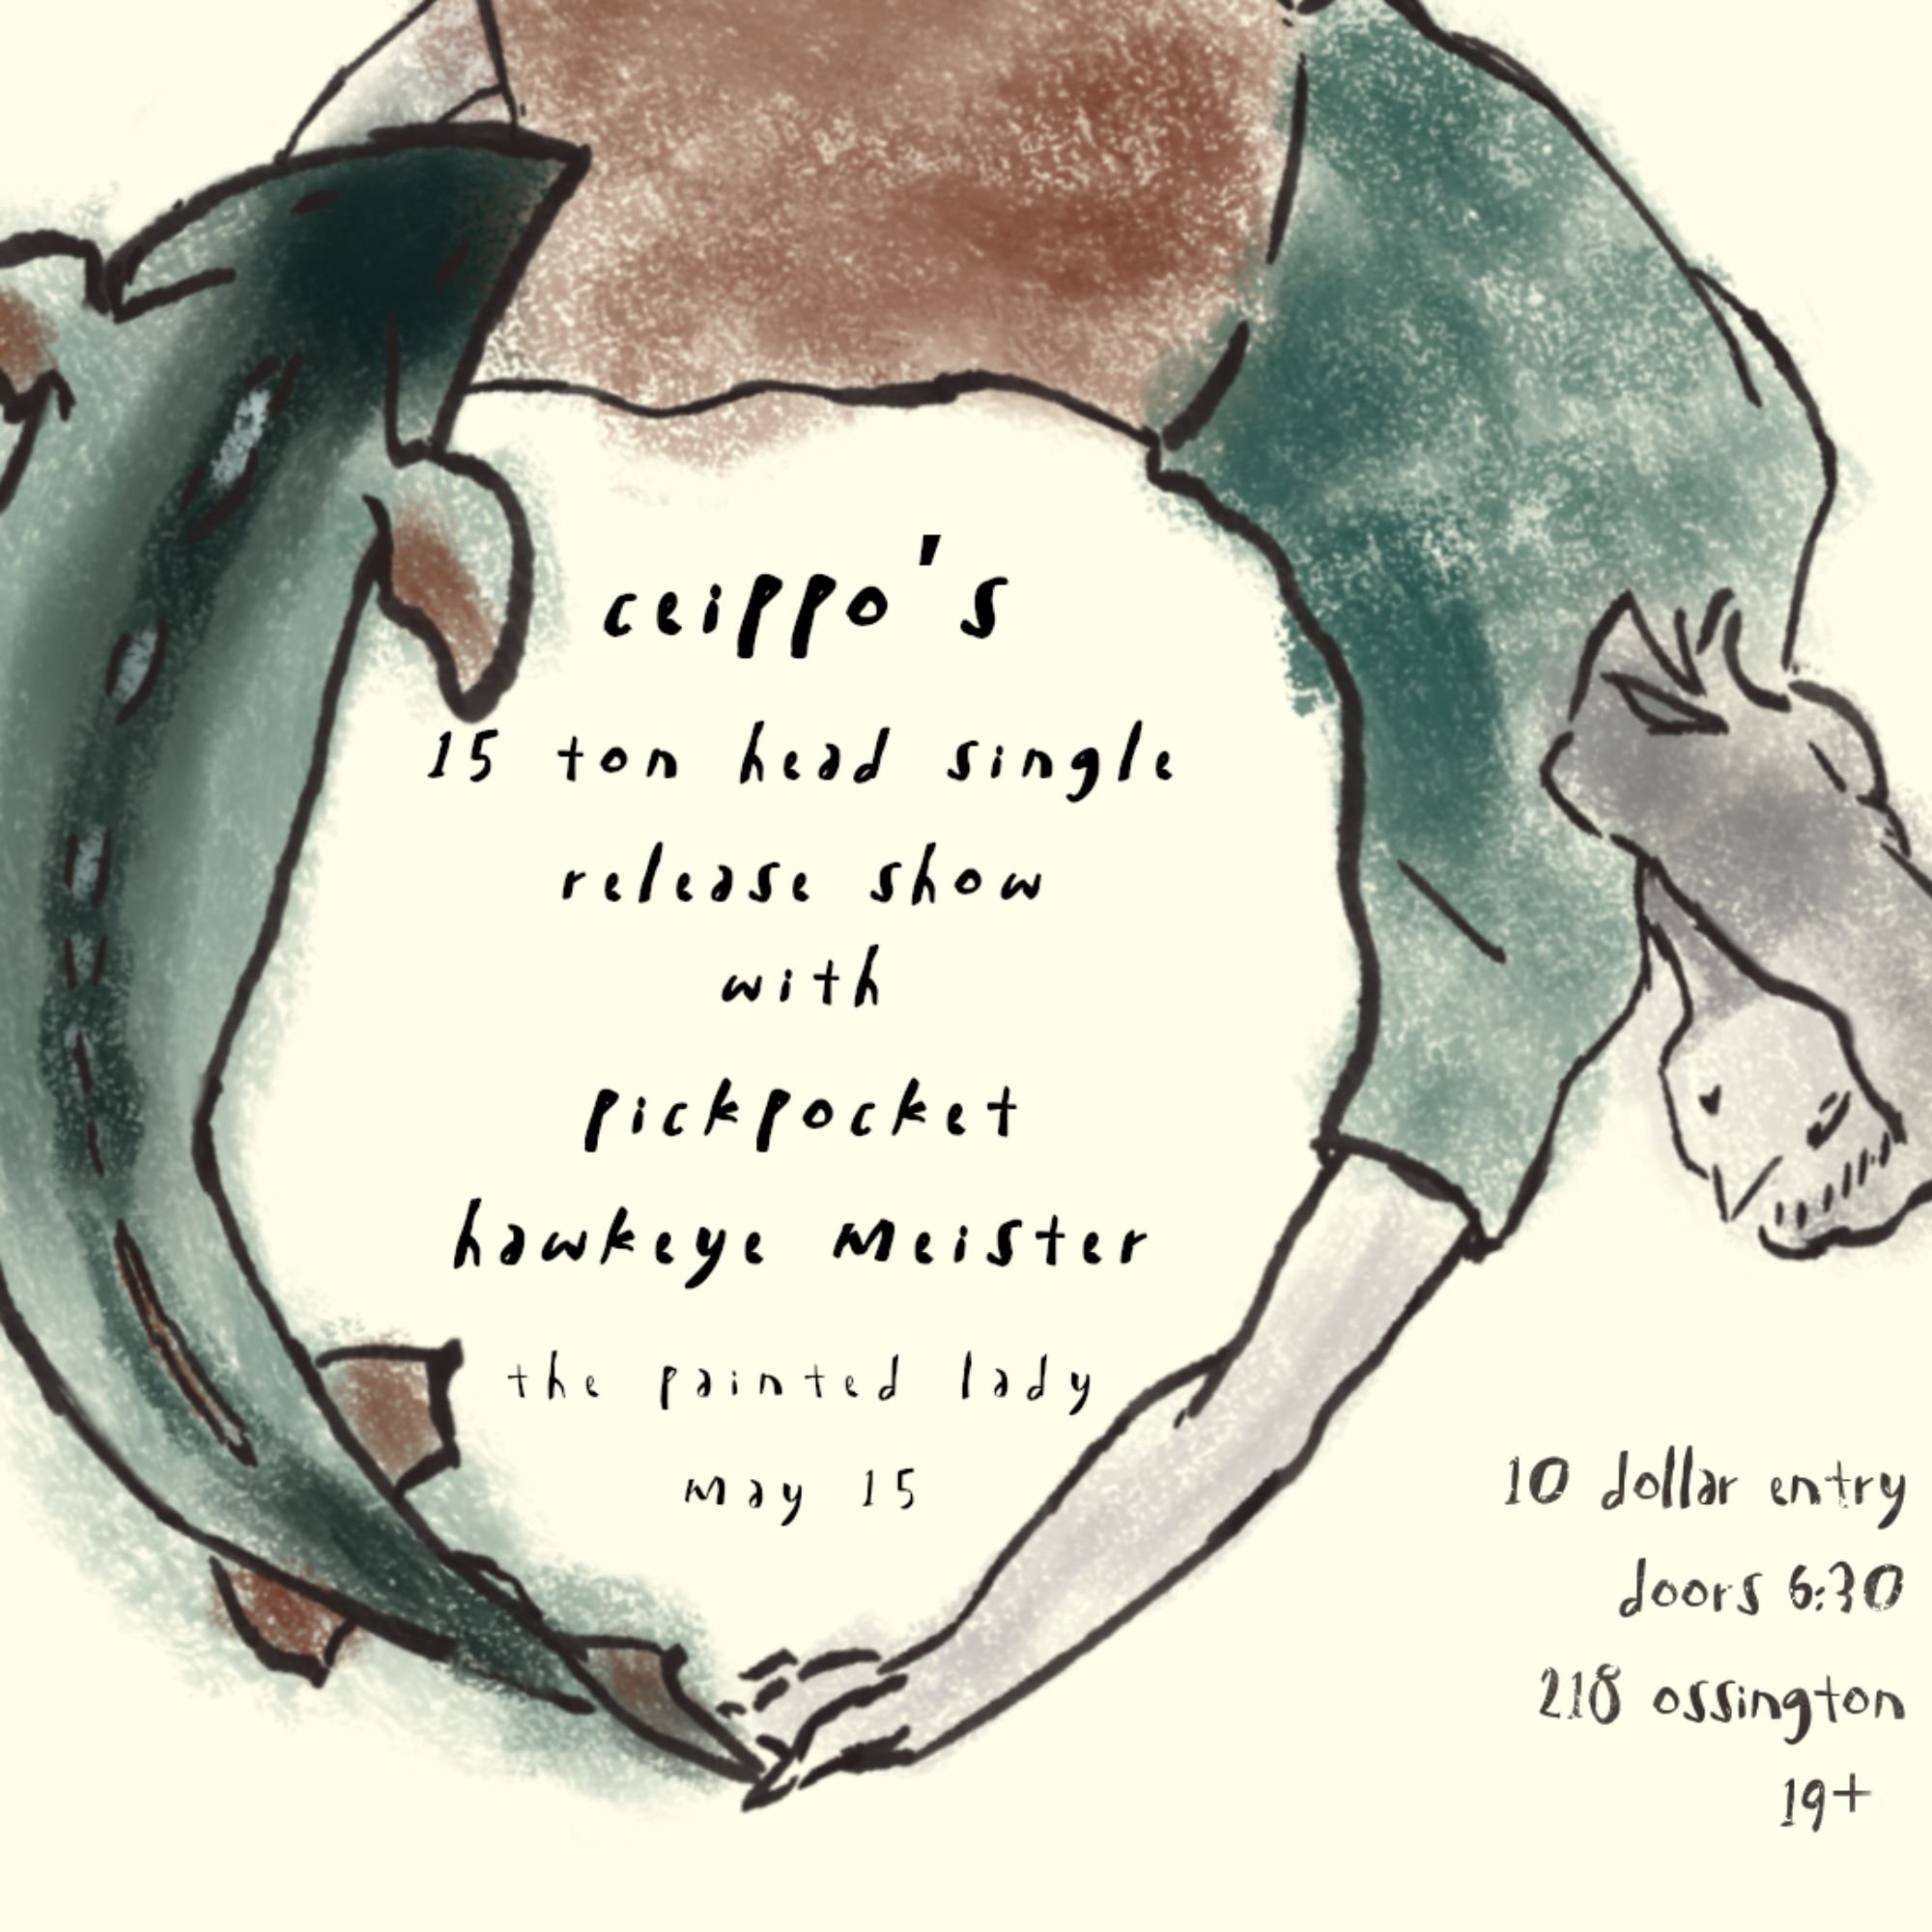 ceippo's
15 ton head single
release show
with
pickpocket
hawkeye meister
the painted lady
may 15
10 dollar entry
doors 6:30
218 ossington
19+